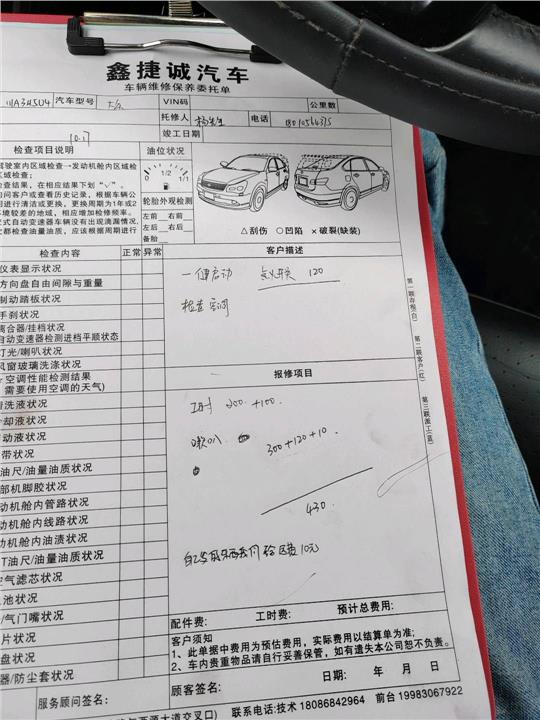 鑫捷诚汽车
车辆维修保养委托单
汽车型号 大众 VIN码 公里数
托修人 杨先生 电话
竣工日期
检查项目说明 油位状况
驾驶室内区域检查→发动机舱内区域检
区域检查;
检查结果，在相应结果下划"√"。
询问客户或查看历史记录，根据车辆
同进行清洁或更换，更换周期为1年或2
环境较差的地域，相应增加检修频率。
式自动变速器车辆没有出现滴漏情况，
都检查油量油质，应该根据周期进行
0 1/2 1/1
轮胎外观检测
左前 右前
左后 右后
备胎
△刮伤 ○凹陷 ×破裂(缺装)
检查内容 正常 异常 客户描述
仪表显示状况
方向盘自由间隙与重量
制动踏板状况
手刹状况
离合器/挂档状况
自动变速器检测进档平顺状态
灯光/喇叭状况
风窗玻璃洗涤状况
空调性能检测结果
需要使用空调的天气)
清洗液状况
却液状况
动液状况
带状况
油尺/油量油质状况
部机脚胶状况
动机舱内管路状况
动机舱内线路状况
动机舱内油渍状况
T油尺/油量油质状况
空气滤芯状况
池状况
/气门嘴状况
片状况
盘状况
器/防尘套状况
一键启动 点火开关 120
检查空调
报修项目
工时 200 +100.
喇叭
300+120+10
430.
10元
配件费: 工时费: 预计总费用:
客户须知
1、此单据中费用为预估费用，实际费用以结算单为准;
2、车内贵重物品请自行妥善保管，如有遗失本公司恕不负责。
日期: 年 月 日
服务顾问签名: 顾客签名:
西源大道交叉口) 联系电话:技术 18086842964 前台 19983067922
第一联存根(白)
第二联客户(红)
第三联派工(蓝)